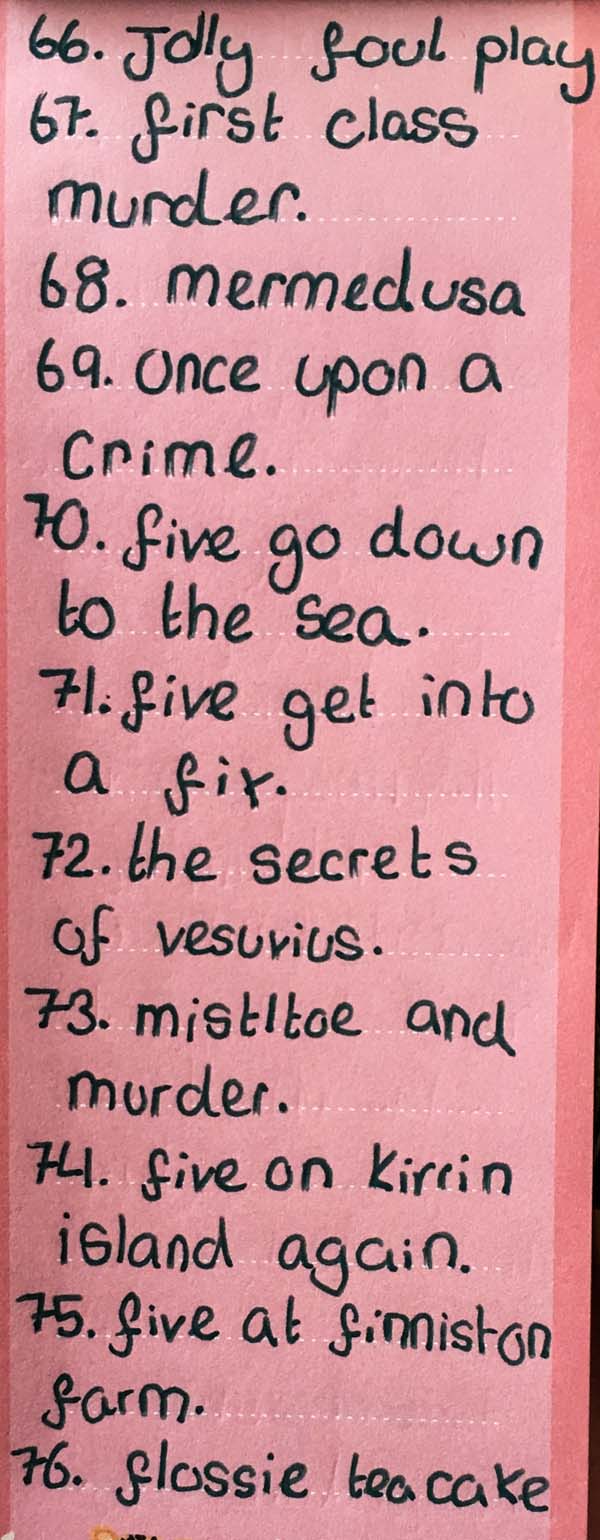 66. Jolly foul play
67. first class
murder.
68. mermedusa
69. Once upon a
crime.
70. five go down
to the sea.
71. five get into
a fix.
72. the secrets
of vesuvius.
73. mistltoe and
murder.
74. five on Kirrin
island again.
75. five at finniston
farm.
76. flossie teacake